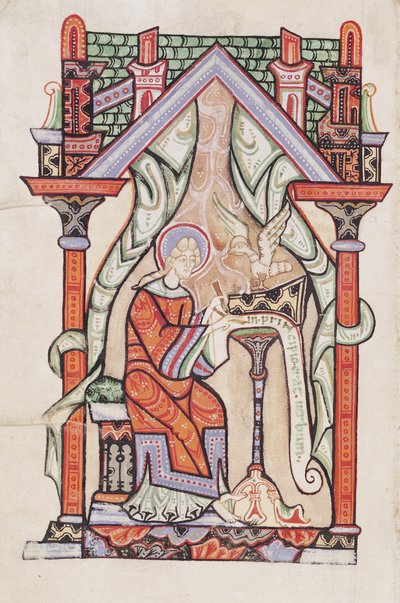 in·prin
cipio·erat·uerbum·